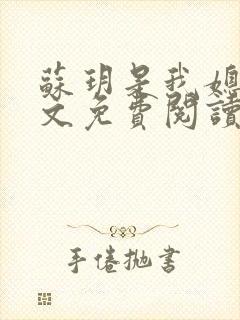 蘇玥是我媳
文免費閱讀
手倦拋書